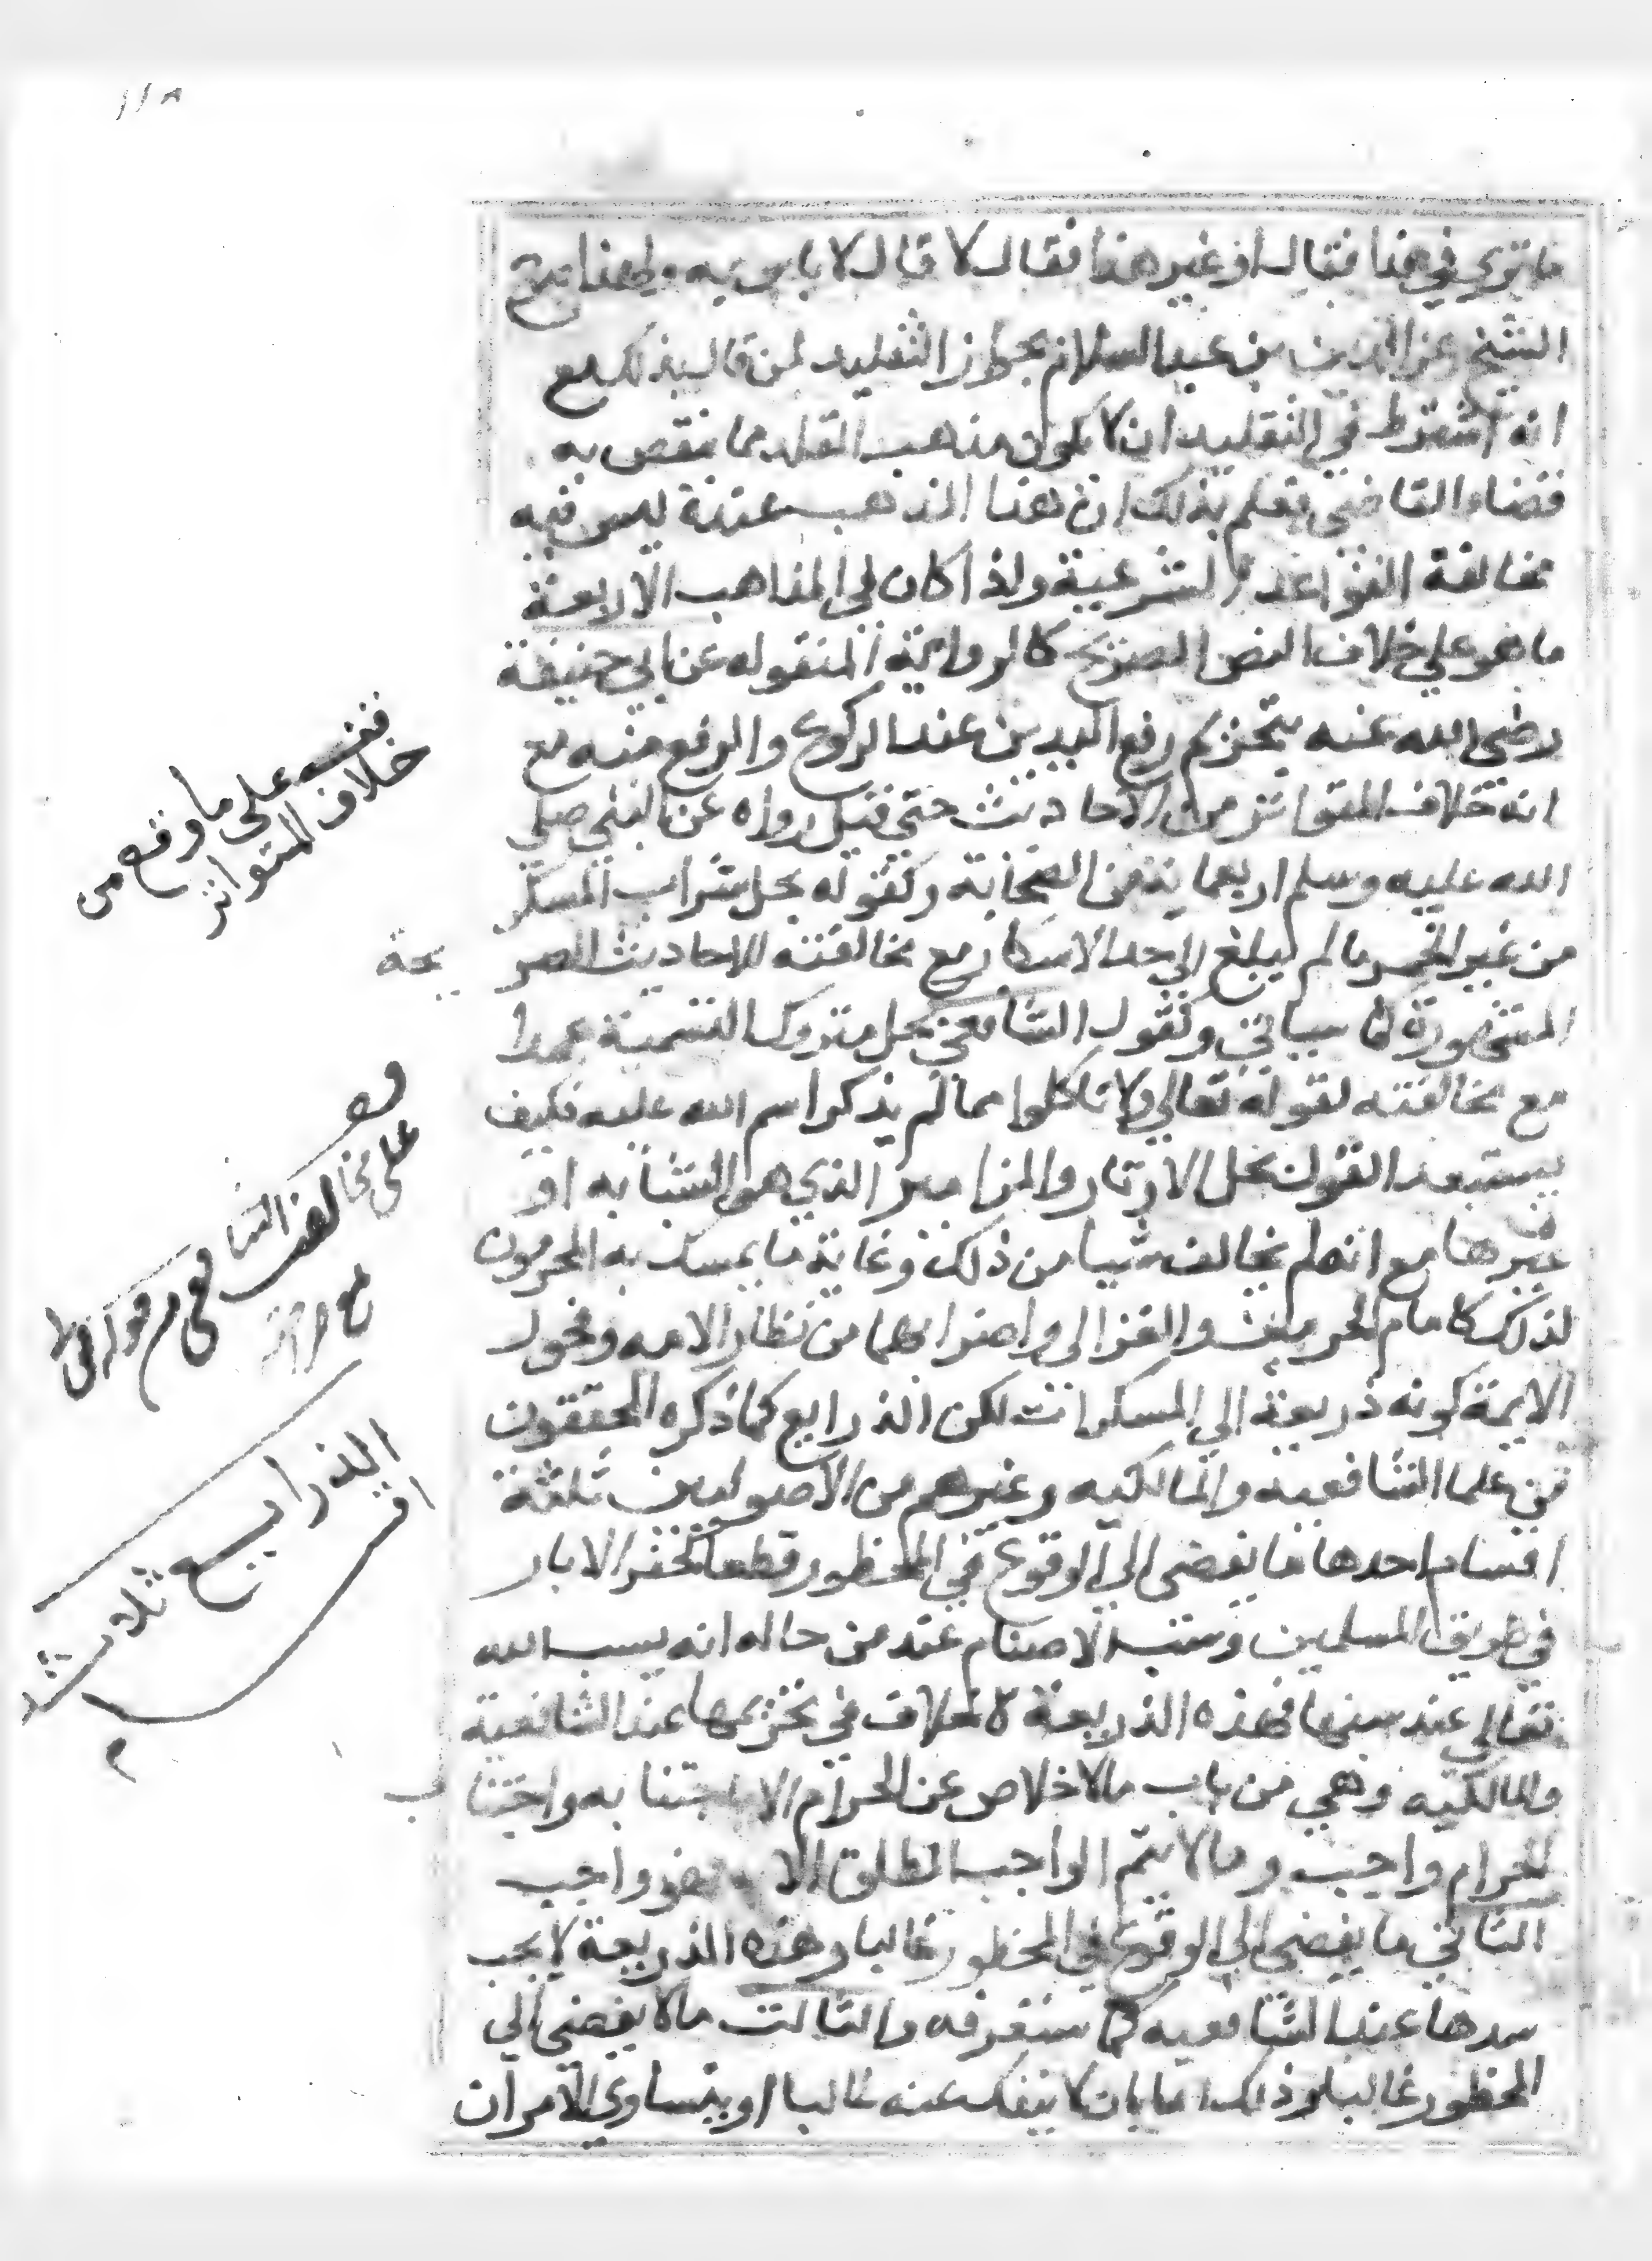 ١١٨
ما تري في هذا فقال او غير هذا فقال لا قال لا باس به ولهذا صرح
الشيخ عز الدين بن عبد السلام بجواز التقليد لمن قال بذلك مع
انه اشترط في التقليد ان لا يكون مذهب المقلد مما ينقص به
قضاء القاضي فعلم بذلك ان هذا المذهب عنده ليس فيه
مخالفة القواعد الشرعية واذا كان في المذاهب الاربعة
ما هو علي خلاف النص الصريح كالرواية المنقوله عن ابي حنيفة
رضي الله عنه بتحريم رفع اليدين عند الركوع والرفع منه مع
انه خلاف المتواتر من الاحاديث حتي قيل رواه عن النبي صلي
الله عليه وسلم اربعماية من الصحابة وكقوله بحل شراب المسكر
من غير الخمر ما لم يبلغ الي حد الاسكار مع مخالفته للاحاديث الصر
يحة
المشهورة كما سياتي وكقول الشافعي بحل متروك التسمية عمدا
مع مخالفته لقوله تعالي ولا تاكلوا مما لم يذكر اسم الله عليه فكيف
يستبعد القول بحل الاوتار والمزامير الذي هو الشبابه او
غيرها مع انه لم يخالف شيا من ذلك وغاية ما يمسك به المحرمون
لذلك كامام الحرمين والغزالي واضرابهما من نظار الامه وفحول
الايمة كونه ذريعة الي المسكرات لكن الذرايع كما ذكره المحققون
من علما الشافعيه والمالكيه وغيرهم من الاصوليين ثلثة
اقسام احدها ما يفضي الي الوقوع في المحظور قطعا كحفر الابار
في طريق المسلمين وسب الاصنام عند من حاله انه يسب الله
تعالي عند سبها فهذه الذريعة لا خلاف في تحريمها عند الشافعية
والمالكيه وهي من باب ما لا خلاص عن الحرام الا باجتنابه واجتنا
ب
الحرام واجب وما لا يتم الواجب المطلق الا به فهو واجب
الثاني ما يفضي الي الوقوع في المحظور غالبا وهذه الذريعة لا يجب
سدها عند الشافعيه كما ستعرفه والثالث ما لا يفضي الي
المحظور غالبا وذلك اما بان لا ينفك عنه غالبا او يتساوي الامران
فقسه على ما وقع من
خلاف المتواتر
على مخالفت الشافعي
الذرايع ثلاثة